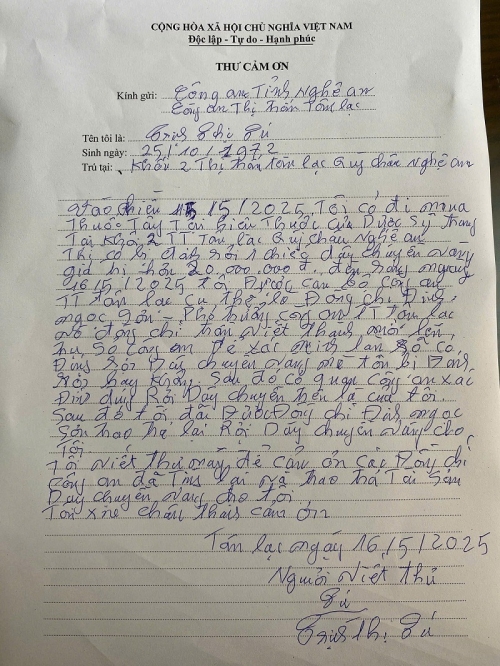 CỘNG HÒA XÃ HỘI CHỦ NGHĨA VIỆT NAM
Độc lập - Tự do - Hạnh phúc
THƯ CẢM ƠN
Kính gửi: Công an Tỉnh Nghệ an
Công an Thị trấn Tân lạc
Tên tôi là: Trịnh Thị Tú
Sinh ngày: 25/10/1972
Trú tại: Khối 2 Thị trấn tân lạc Quỳ châu Nghệ an
Vào chiều 15/5/2025 Tôi có đi mua
Thuốc Tây Tại hiệu Thuốc của Dược Sỹ Trang
Tại Khối 2 TT Tân lạc Quỳ Châu Nghệ an
Thì có bị đánh rơi 1 chiếc dây chuyền vàng
giá trị hơn 20.000.000đ. đến sáng ngày
16/5/2025 tôi Được cán bộ công an
TT tân lạc cụ thể là Đồng chí Đinh
ngọc Sơn - Phó trưởng công an TT tân lạc
và đồng chí trần Viết Thanh mời lên
trụ sở công an Để xác minh lại có
Đúng Sợi Dây chuyền vàng mà tôi bị Đánh
Rơi hay không. Sau đó cơ quan công an xác
Định đúng Sợi Dây chuyền trên là của tôi.
Sau đó tôi đã Được Đồng chí Đinh ngọc
Sơn trao trả lại Sợi Dây chuyền vàng cho
Tôi.
Tôi viết thư này để cảm ơn các Đồng chí
Công an đã Tìm lại và trao trả Tài sản
Dây chuyền vàng cho tôi.
Tôi xin chân thành cảm ơn
Tân lạc ngày 16/5/2025
Người viết thư
Tú
Trịnh Thị Tú